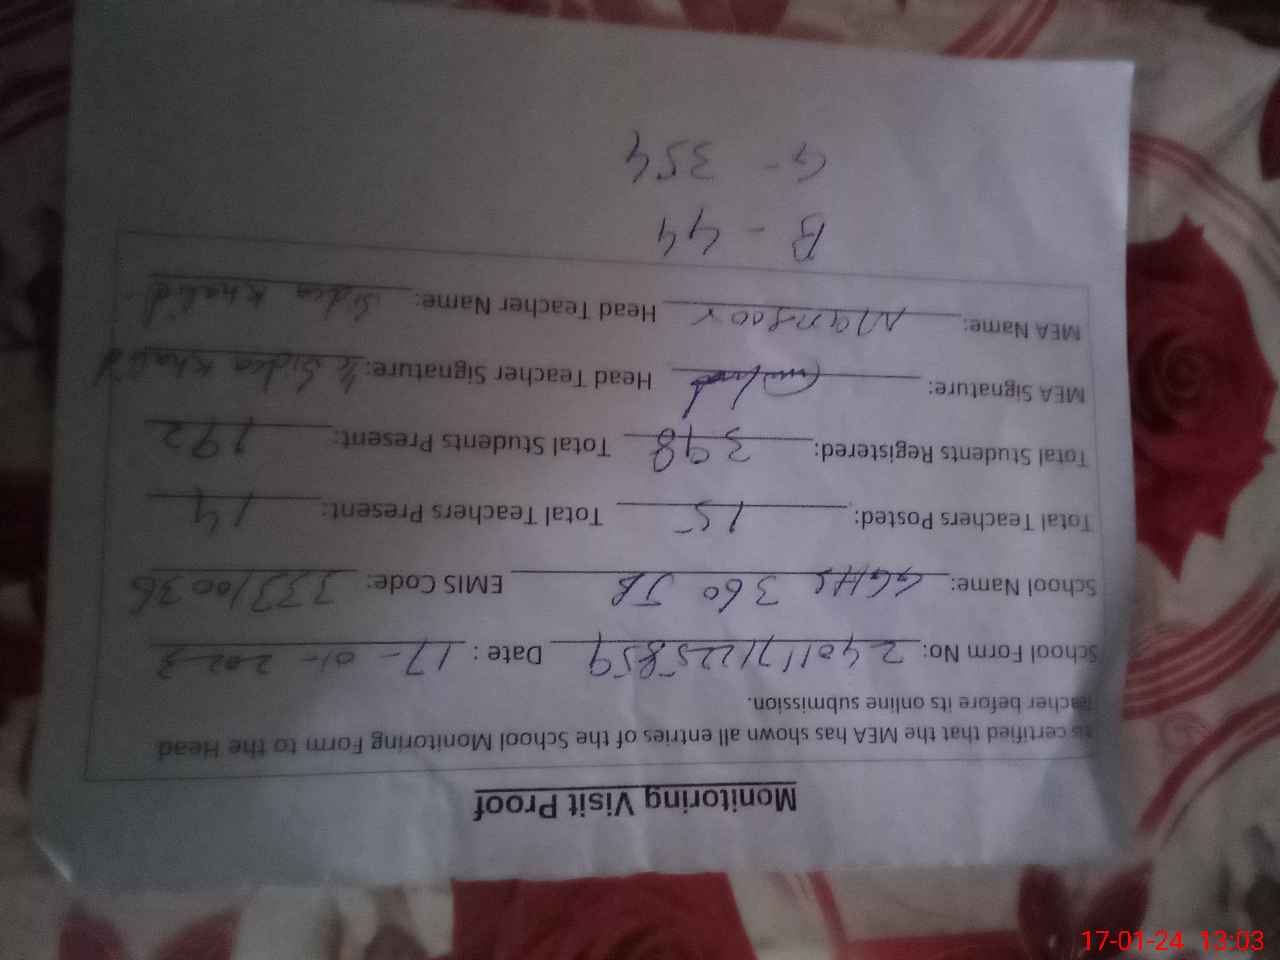 Monitoring Visit Proof
is certified that the MEA has shown all entries of the School Monitoring Form to the Head
Teacher before its online submission.
School Form No: 2401171225859 Date : 17-01-2023
School Name: GGHS 360 JB EMIS Code: 33310036
Total Teachers Posted: 15 Total Teachers Present: 14
Total Students Registered: 398 Total Students Present: 192
MEA Signature: Head Teacher Signature: Sidra Khalid
MEA Name: Manzoor Head Teacher Name: Sidra Khalid
B - 44
G - 354
17-01-24 13:03